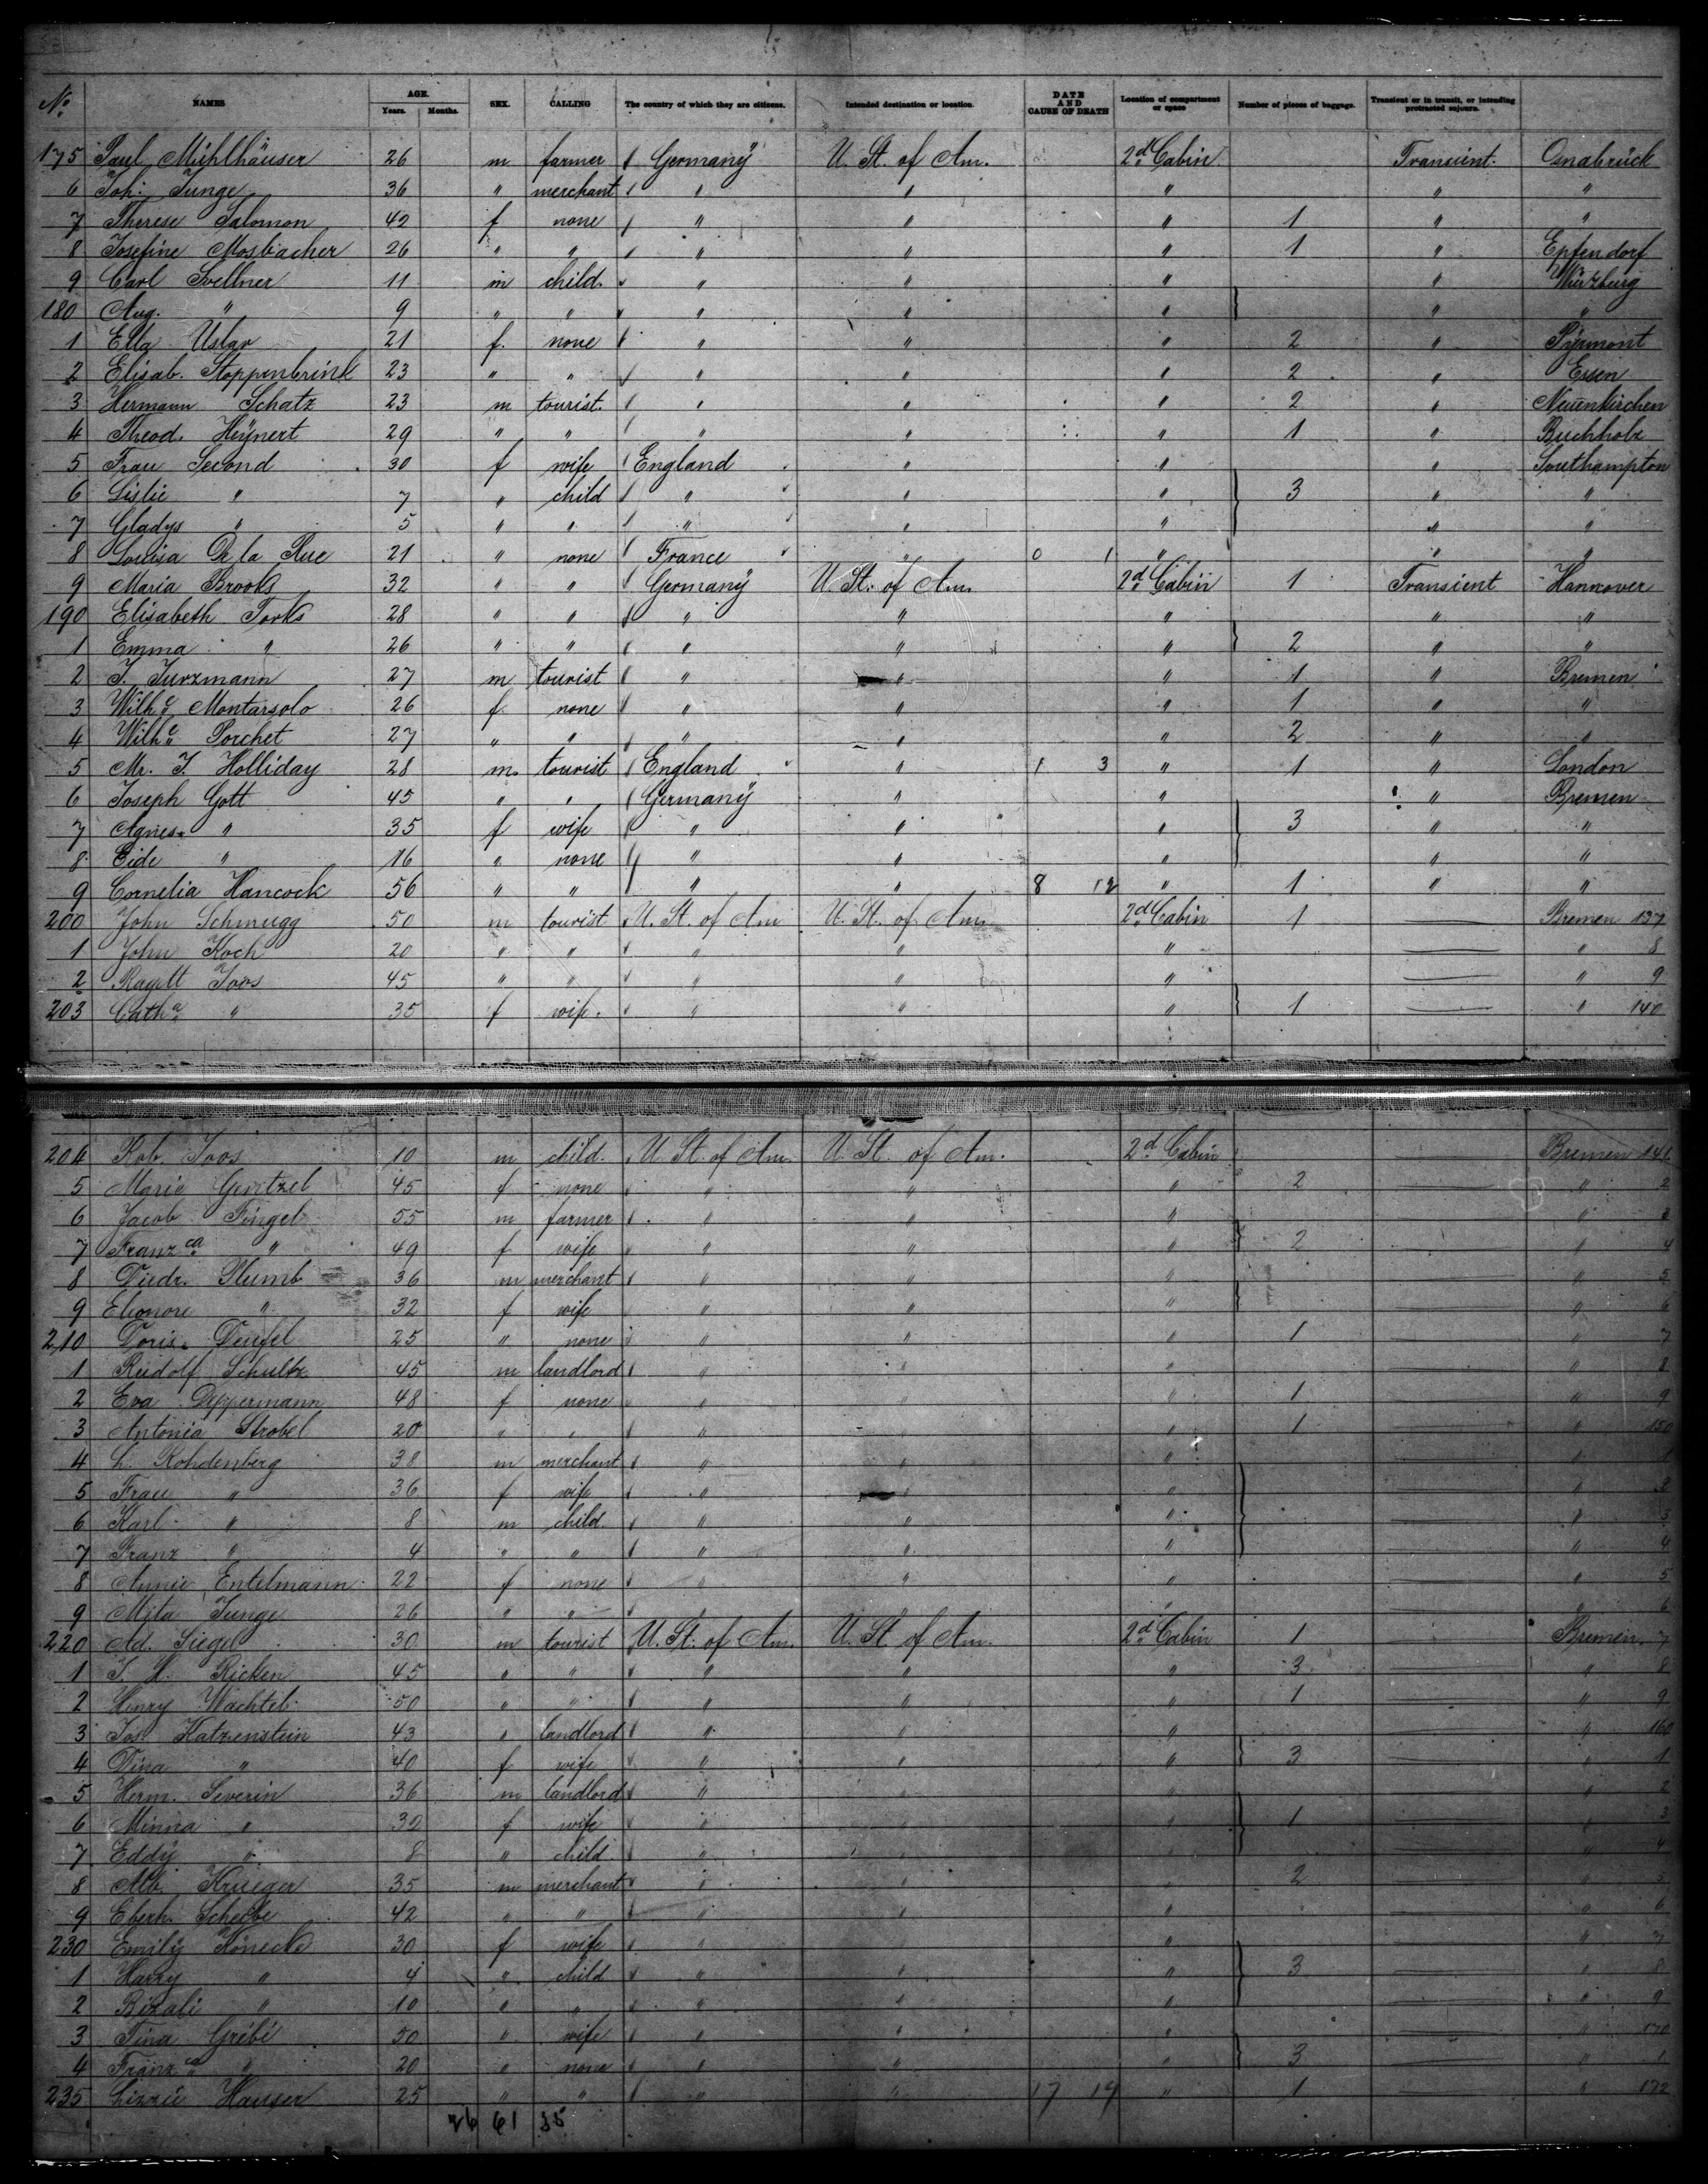 No. NAMES AGE. Years. Months. SEX. CALLING The country of which they are citizens. Intended destination or location. DATE AND CAUSE OF DEATH Location of compartment or space Number of pieces of baggage. Transient or in transit, or intending protracted sojourn.
175 Paul Mühlhäuser 26 m farmer Germany U. St. of Am. 2d Cabin Transient. Osnabrück
6 Joh: Junge 36 " merchant " " " " "
7 Therese Salomon 42 f none " " " 1 " "
8 Josefine Mosbacher 26 " " " " " 1 " Epfendorf
9 Carl 11 m child. " " " " Würzburg
180 Aug. " 9 " " " " " " "
1 Ella Uslar 21 f. none " " " 2 " Pyrmont
2 Elisab. Stoppenbrink 23 " " " " " 2 " Essen
3 Hermann Schatz 23 m tourist. " " " 2 " Neuenkirchen
4 Theod. Heÿnert 29 " " " " " 1 " Buchholz
5 Frau Second 30 f wife England " " " Southampton
6 Lislie " 7 " child " " " 3 " "
7 Gladys " 5 " " " " " " "
8 Louisa De la Rue 21 " none France " 0 1 " " "
9 Maria Brooks 32 " " Germany U. St. of Am. 2d Cabin 1 Transient Hannover
190 Elisabeth Torks 28 " " " " " " "
1 Emma " 26 " " " " " 2 " "
2 J. Jurzmann 27 m tourist " " " 1 " Bremen
3 Wilhe Montarsolo 26 f none " " " 1 " "
4 Wilhe Porchet 27 " " " " " 2 " "
5 Mr. J. Holliday 28 m. tourist England " 1 3 " 1 " London
6 Joseph Gott 45 " " Germany " " " Bremen
7 Agnes " 35 f wife " " " 3 " "
8 Eide " 16 " none " " " " "
9 Cornelia Hancock 56 " " " " 8 12 " 1 " "
200 John Schmugg 50 m tourist U. St. of Am U. St. of Am. 2d Cabin 1 Bremen 137
1 John Koch 20 " " " " " " 8
2 Joos 45 " " " " " " 9
203 Catha " 35 f wife. " " " 1 " 140
204 Rob. Joos 10 m child. U. St. of Am. U. St. of Am. 2d Cabin Bremen 141
5 Marie 45 f none " " " 2 " 2
6 Jacob Fingel 55 m farmer " " " " 3
7 Franzca " 49 f wife " " " 2 " 4
8 Diedr. Plumb 36 m merchant " " " " 5
9 Eleonore " 32 f wife " " " " 6
210 Doris Deufel 25 " none " " " 1 " 7
1 Rudolf Schultz 45 m landlord " " " " 8
2 Eva Deppermann 48 f none " " " 1 " 9
3 Antonia Strobel 20 " " " " " 1 " 150
4 L. Rohdenberg 38 m merchant " " " " 1
5 Frau " 36 f wife " " " " 2
6 Karl " 8 m child. " " " " 3
7 Franz " 4 " " " " " " 4
8 Annie Entelmann 22 f none " " " " 5
9 Meta Junge 26 " " " " " " 6
220 Ad. Siegel 30 m tourist U. St. of Am. U. St. of Am. 2d Cabin 1 Bremen 7
1 J. H. Ricken 45 " " " " " 3 " 8
2 Henry Wachtel 50 " " " " " 1 " 9
3 Jos. Katzenstein 43 " landlord " " " " 160
4 Dina " 40 f wife " " " 3 " 1
5 Herm. Severin 36 m landlord " " " " 2
6 Minna " 32 f wife " " " 1 " 3
7 Eddy " 8 " child. " " " " 4
8 Alb. Krueger 35 m merchant " " " 2 " 5
9 Eberh. Scheibe 42 " " " " " " 6
230 Emily Könecke 30 f wife " " " " 7
1 Harry " 4 " child " " " 3 " 8
2 " 10 " " " " " " 9
3 Tina Grébé 50 " wife " " " " 170
4 Franzca " 20 " none " " " 3 " 1
235 Lizzie Hauser 25 " " " " 17 19 " 1 " 172
26 61 35